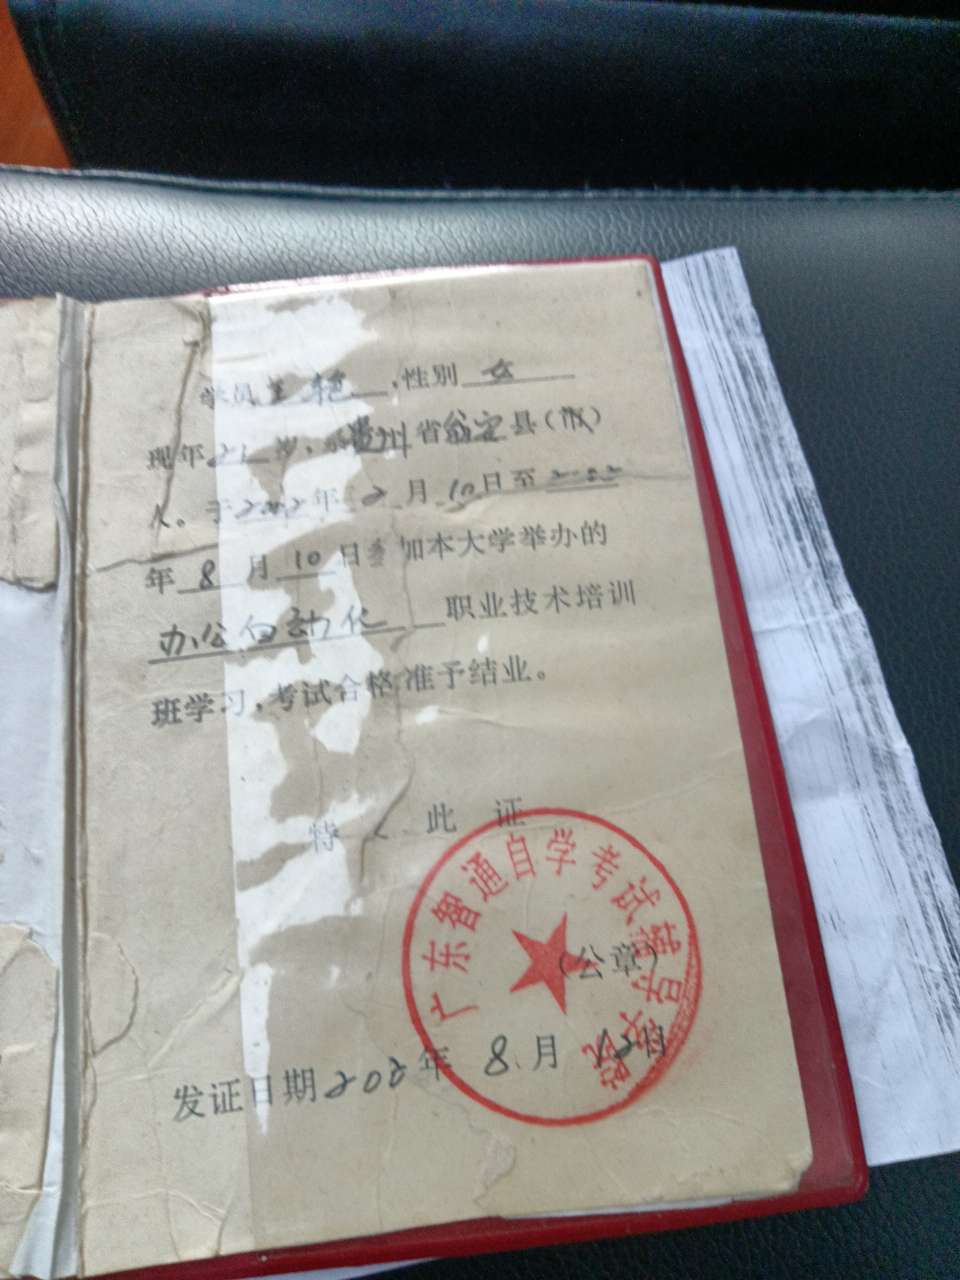 学员王艳,性别女
现年21岁,系贵州省翁安县(市)
人。于2002年2月10日至2002
年8月10日参加本大学举办的
办公自动化职业技术培训
班学习,考试合格准予结业。
特此证
广东智通自学考试辅导学院
(公章)
发证日期2002年8月12日